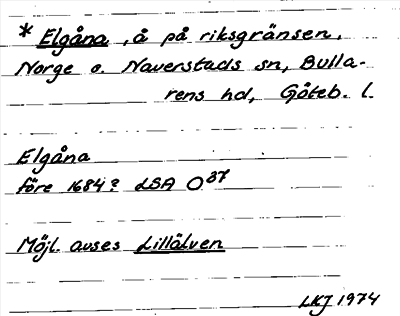 * Elgåna, å på riksgränsen.
Norge o. Naverstads sn, Bulla-
rens hd, Göteb. l.
Elgåna
före 1684? LSA O37
Möjl. avses Lillälven
LKJ 1974